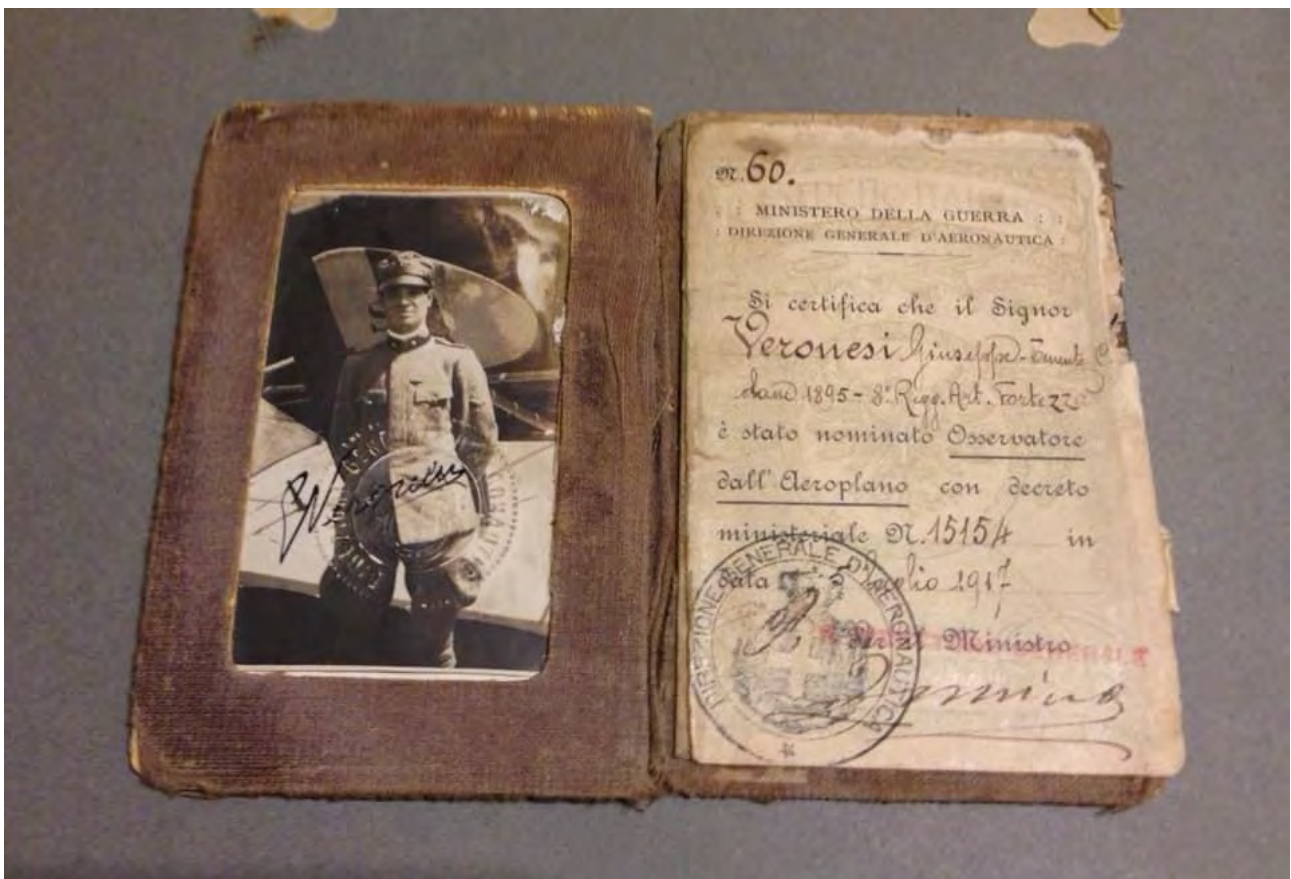 Veronesi
N. 60.
: : MINISTERO DELLA GUERRA : :
: DIREZIONE GENERALE D'AERONAUTICA :
Si certifica che il Signor
Veronesi Giuseppe - Tenente
1895 - 8º Regg. Art. Fortezza
è stato nominato Osservatore
dall'Aeroplano con decreto
ministeriale N. 15154 in
data Luglio 1917
Per il Ministro
DIREZIONE GENERALE D'AERONAUTICA